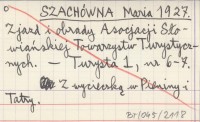 SZACHÓWNA Maria 1927.
Zjazd i obrady Asocjacji Sło-
wiańskiej Towarzystw Turystycz-
nych. — Turysta 1, nr 6-7.
Z wycieczką w Pieniny i
Tatry.
BT/045/2118